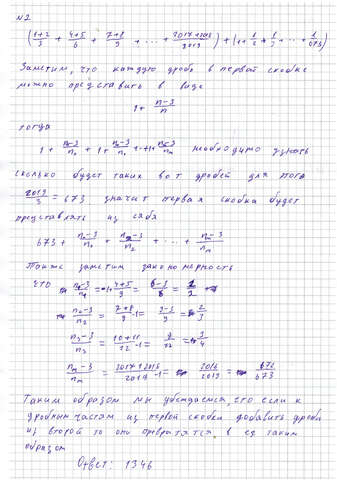 №2
(1+2/3 + 4+5/6 + 7+8/9 + ... + 2017+2018/2019) + (1+ 1/2 + 1/3 + ... + 1/673)
Заметим, что каждую дробь в первой скобке
можно представить в виде
1+ n-3/n
тогда
1+ n₁-3/n₁ + 1+ n₂-3/n₂ +...+1+ nₘ-3/nₘ необходимо узнать
сколько будет таких вот дробей для того
2019/3 = 673 значит первая скобка будет
представлять из себя
673 + n₁-3/n₁ + n₂-3/n₂ + ... + nₘ-3/nₘ
Также заметим закономерность
что n₁-3/n₁ =
n₂-3/n₂ = 7+8/9 -1 = 9-3/9 = 2/3
n₃-3/n₃ = 10+11/12 -1 = 9/12 = 3/4
nₘ-3/nₘ = 2017+2018/2019 -1 = 2016/2019 = 672/673
Таким образом мы убеждаемся, что если к
дробным частям из первой скобки добавить дроби
из второй то они превратятся в ед. таким
образом
Ответ: 1346